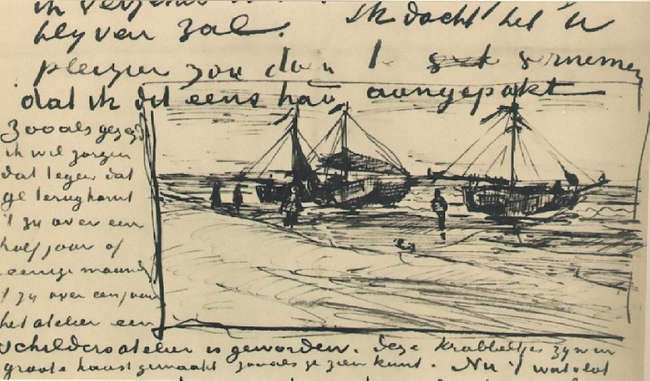 ik verzekerd
blyven zal. Ik dacht het U
plezier zou doen te vernemen
dat ik dit eens had aangepakt
Zooals gezegd
ik wil zorgen
dat tegen dat
ge terugkomt
't zy over een
half jaar of
eenige maand
't zy over een jaar
het atelier een
schildersatelier is geworden. Deze krabbeltjes zyn in
groote haast gemaakt zooals ge zien kunt. Nu 't wat